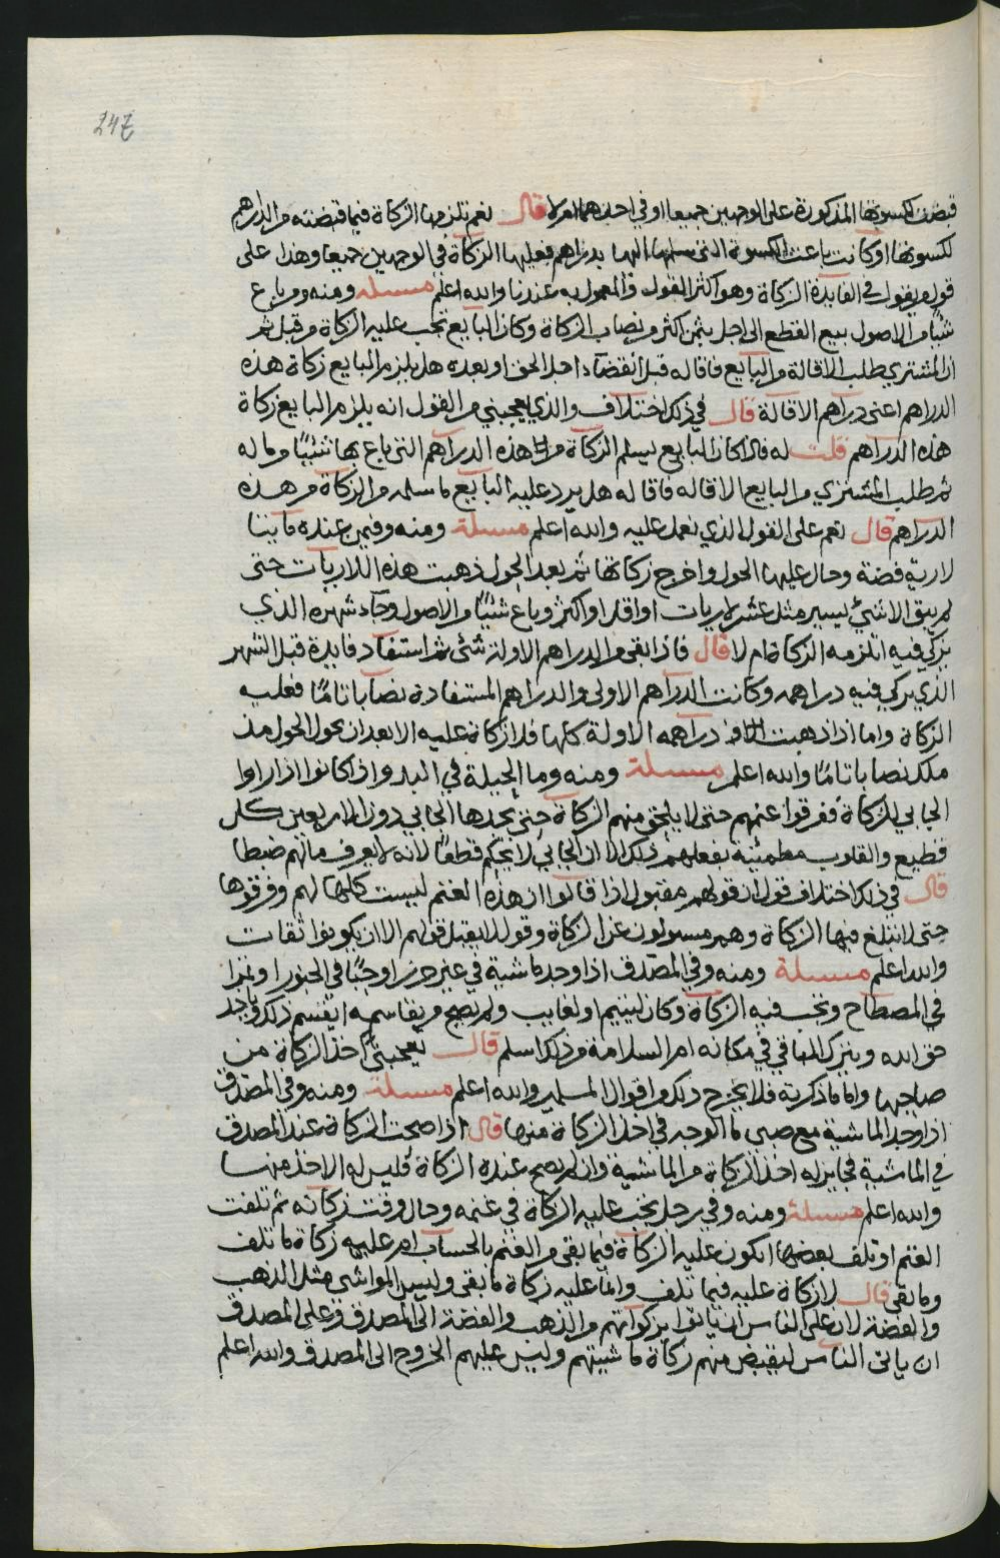 247
قبضت لكسوتها المذكورة على الوجهين جميعا او في احدهما ام لا قال نعم تلزمها الزكاة فيما قبضته من الدراهم
لكسوتها او كانت باعت الكسوة التي سلمها اليها بدراهم فعليها الزكاة في الوجهين جميعا وهذا على
قول من يقول في الفايدة الزكاة وهو اكثر القول والمعمول به عندنا والله اعلم مسئلة ومنه ومن باع
شيئًا من الاصول ببيع القطع الى اجل بثمن اكثر من نصاب الزكاة وكان البايع تجب عليه الزكاة من قبل ثم
ان المشتري طلب الاقالة من البايع فاقاله قبل انقضاء اجل الحق او بعده هل يلزم البايع زكاة هذه
الدراهم اعني دراهم الاقالة قال في ذلك اختلاف والذي يعجبني من القول انه يلزم البايع زكاة
هذه الدراهم قلت له فان كان البايع يسلم الزكاة من هذه الدراهم التي باع بها شيئًا من ماله
ثم طلب المشتري من البايع الاقاله فاقاله هل يرد عليه البايع ما سلم من الزكاة من هذه
الدراهم قال نعم على القول الذي نعمل عليه والله اعلم مسئلة ومنه وفيمن عنده مايتا
لارية فضة وحال عليها الحول واخرج زكاتها ثم بعد الحول ذهبت هذه اللاريات حتى
لم يبق الا شيء يسير مثل عشر لاريات او اقل او اكثر وباع شيئًا من الاصول وجاء شهره الذي
يزكي فيه اتلزمه الزكاة ام لا قال فاذا بقي من الدراهم الاولة شئ ثم استفاد فايدة قبل الشهر
الذي يزكي فيه دراهمه وكانت الدراهم الاولى والدراهم المستفادة نصابا تامًا فعليه
الزكاة واما اذا ذهبت دراهمه الاولة كلها فلا زكاة عليه الا بعد ان يحول الحول مذ
ملك نصابا تامًا والله اعلم مسئلة ومنه وما الحيلة في البدو اذا كانوا اذا راوا
الجابي للزكاة فرقوا غنمهم حتى لا يلحق منهم الزكاة حتى يجدها الجابي دون الاربعين كل
قطيع والقلوب مطمئنة بفعلهم ذلك الا ان الجابي لا يحكم قطعًا لانه لا يعرف مالهم ضبطا
قال في ذلك اختلاف قول ان قولهم مقبول اذا قالوا ان هذه الغنم ليست كلها لهم وفرقوها
حتى لا تبلغ فيها الزكاة وهم مسئولون عن الزكاة وقول لا يقبل قولهم الا ان يكونوا ثقات
والله اعلم مسئلة ومنه وفي المصدق اذا وجد ماشية في غير حرز او حبًا في الجنور او تمرا
في المصطاح وتجب فيه الزكاة وكان ليتيم او لغايب ولم يصح من يقاسمه ايقسم ذلك وياخذ
حق الله ويترك الباقي في مكانه ام السلامة من ذلك اسلم قال يعجبني اخذ الزكاة من
صاحبها واما ما ذكرته فلا يخرج ذلك من اقوال المسلمين والله اعلم مسئلة ومنه وفي المصدق
اذا وجد الماشية مع صبي ما الوجه في اخذ الزكاة منها قال اذا صحت الزكاة عند المصدق
في الماشية فجايز له اخذ الزكاة من الماشية وان لم يصح عنده الزكاة فليس له الاخذ منها
والله اعلم مسئلة ومنه وفي رجل يجب عليه الزكاة في غنمه وحال وقت زكاته ثم تلفت
الغنم او تلف بعضها ايكون عليه الزكاة فيما بقي من الغنم بالحساب ام عليه زكاة ما تلف
وما بقي قال لا زكاة عليه فيما تلف وانما عليه زكاة ما بقي وليس المواشي مثل الذهب
والفضة لان على الناس ان ياتوا بزكواتهم من الذهب والفضة الى المصدق وعلى المصدق
ان ياتي الناس ليقبض منهم زكاة ماشيتهم وليس عليهم الخروج الى المصدق والله اعلم